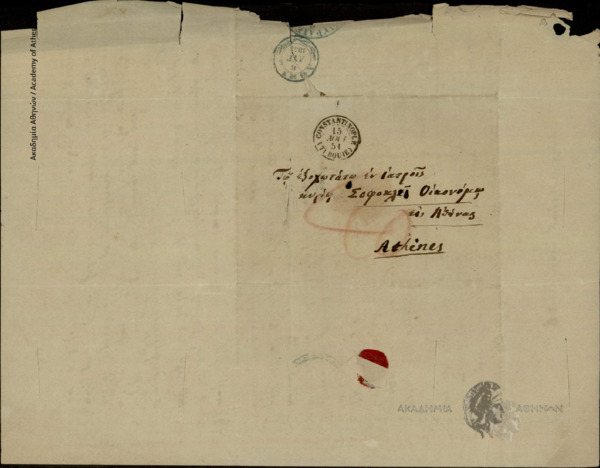 Ακαδημία Αθηνών / Academy of Athe
CONSTANTINOPLE
15
AOUT
54
(TURQUIE)
Τῷ ἐξοχωτάτῳ ἐν ἰατροῖς
κυρίῳ Σοφοκλεῖ Οἰκονόμῳ
εἰς Ἀθήνας
Athènes
ΑΚΑΔΗΜΙΑ ΑΘΗΝΩΝ